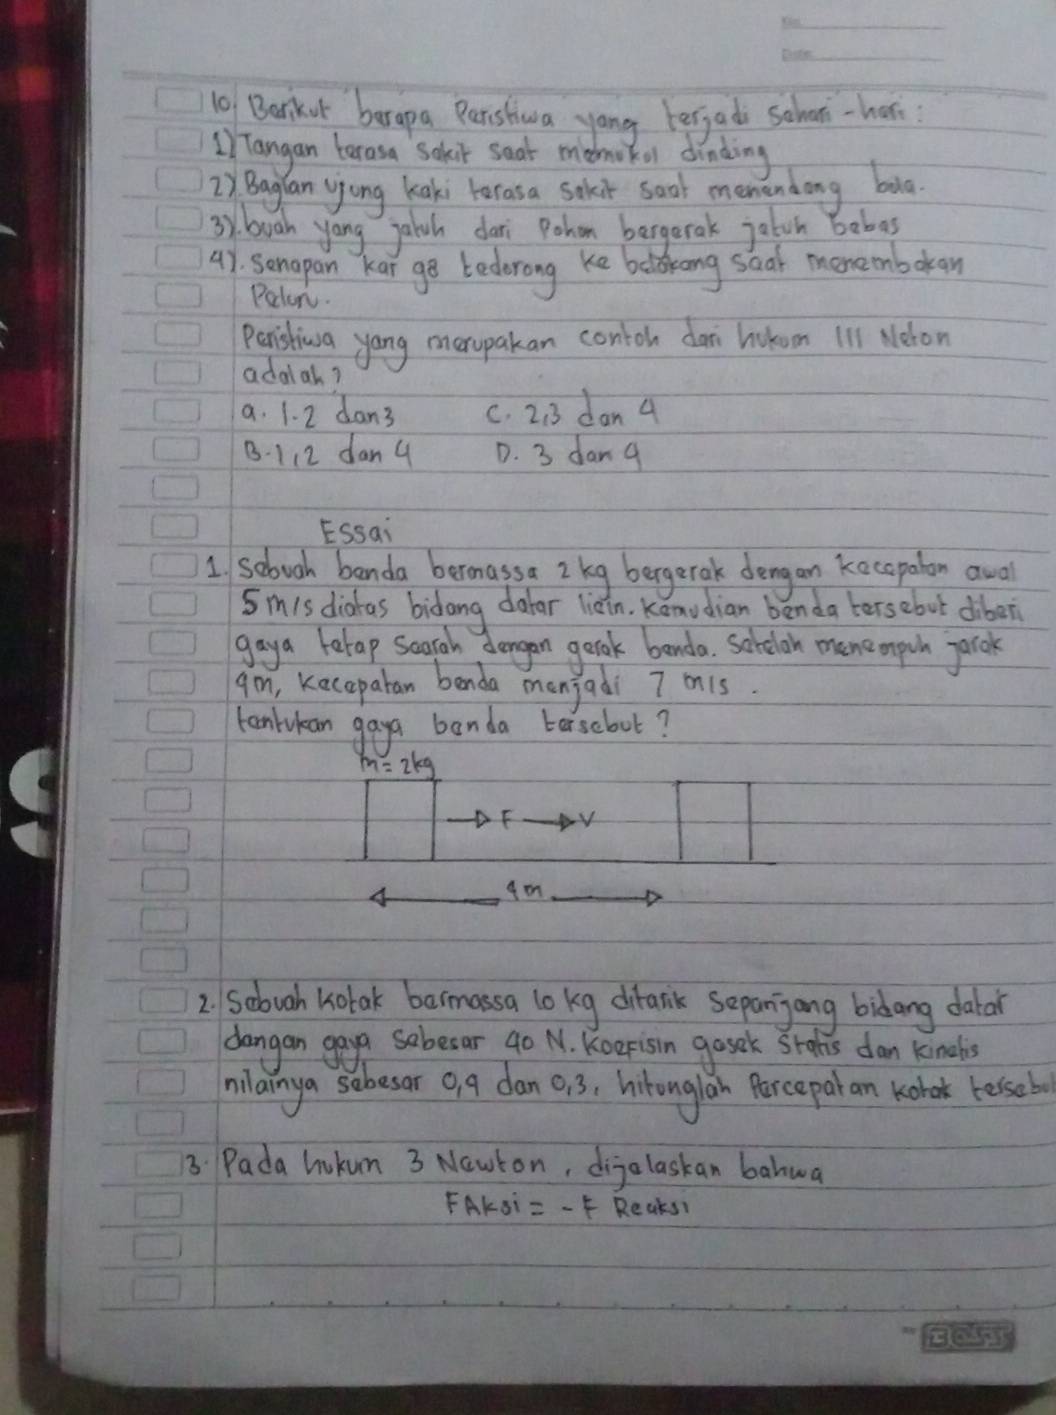 No
Date
10. Berikut berapa Peristiwa yang terjadi sehari-hari:
1) Tangan terasa sakit saat memukul dinding
2). Bagian ujung kaki terasa sakit saat menendang bola.
3). buah yang jatuh dari Pohon bergerak jatuh bebas
4). Senapan kar ge tedorong ke belakang saat menembakan
Peluru.
Peristiwa yang merupakan contoh dari hukum III Neton
adalah?
a. 1.2 dan 3 C. 2,3 dan 4
B. 1,2 dan 4 D. 3 dan 4
Essai
1. Sebuah benda bermassa 2 kg bergerak dengan kecepatan awal
5 m/s diatas bidang datar licin. Kemudian benda tersebut diberi
gaya tetap searah dengan gerak benda. Setelah menempuh jarak
4m, kecepatan benda menjadi 7 m/s.
tentukan gaya benda tersebut?
m = 2kg
F V
4 m
2. Sebuah kotak bermassa 10 kg ditarik sepanjang bidang datar
dengan gaya sebesar 40 N. Koefisin gesek statis dan kinetis
nilainya sebesar 0,4 dan 0,3, hitunglah Percepatan kotak tersebu
3. Pada hukum 3 Newton, dijelaskan bahwa
F Aksi = - F Reaksi